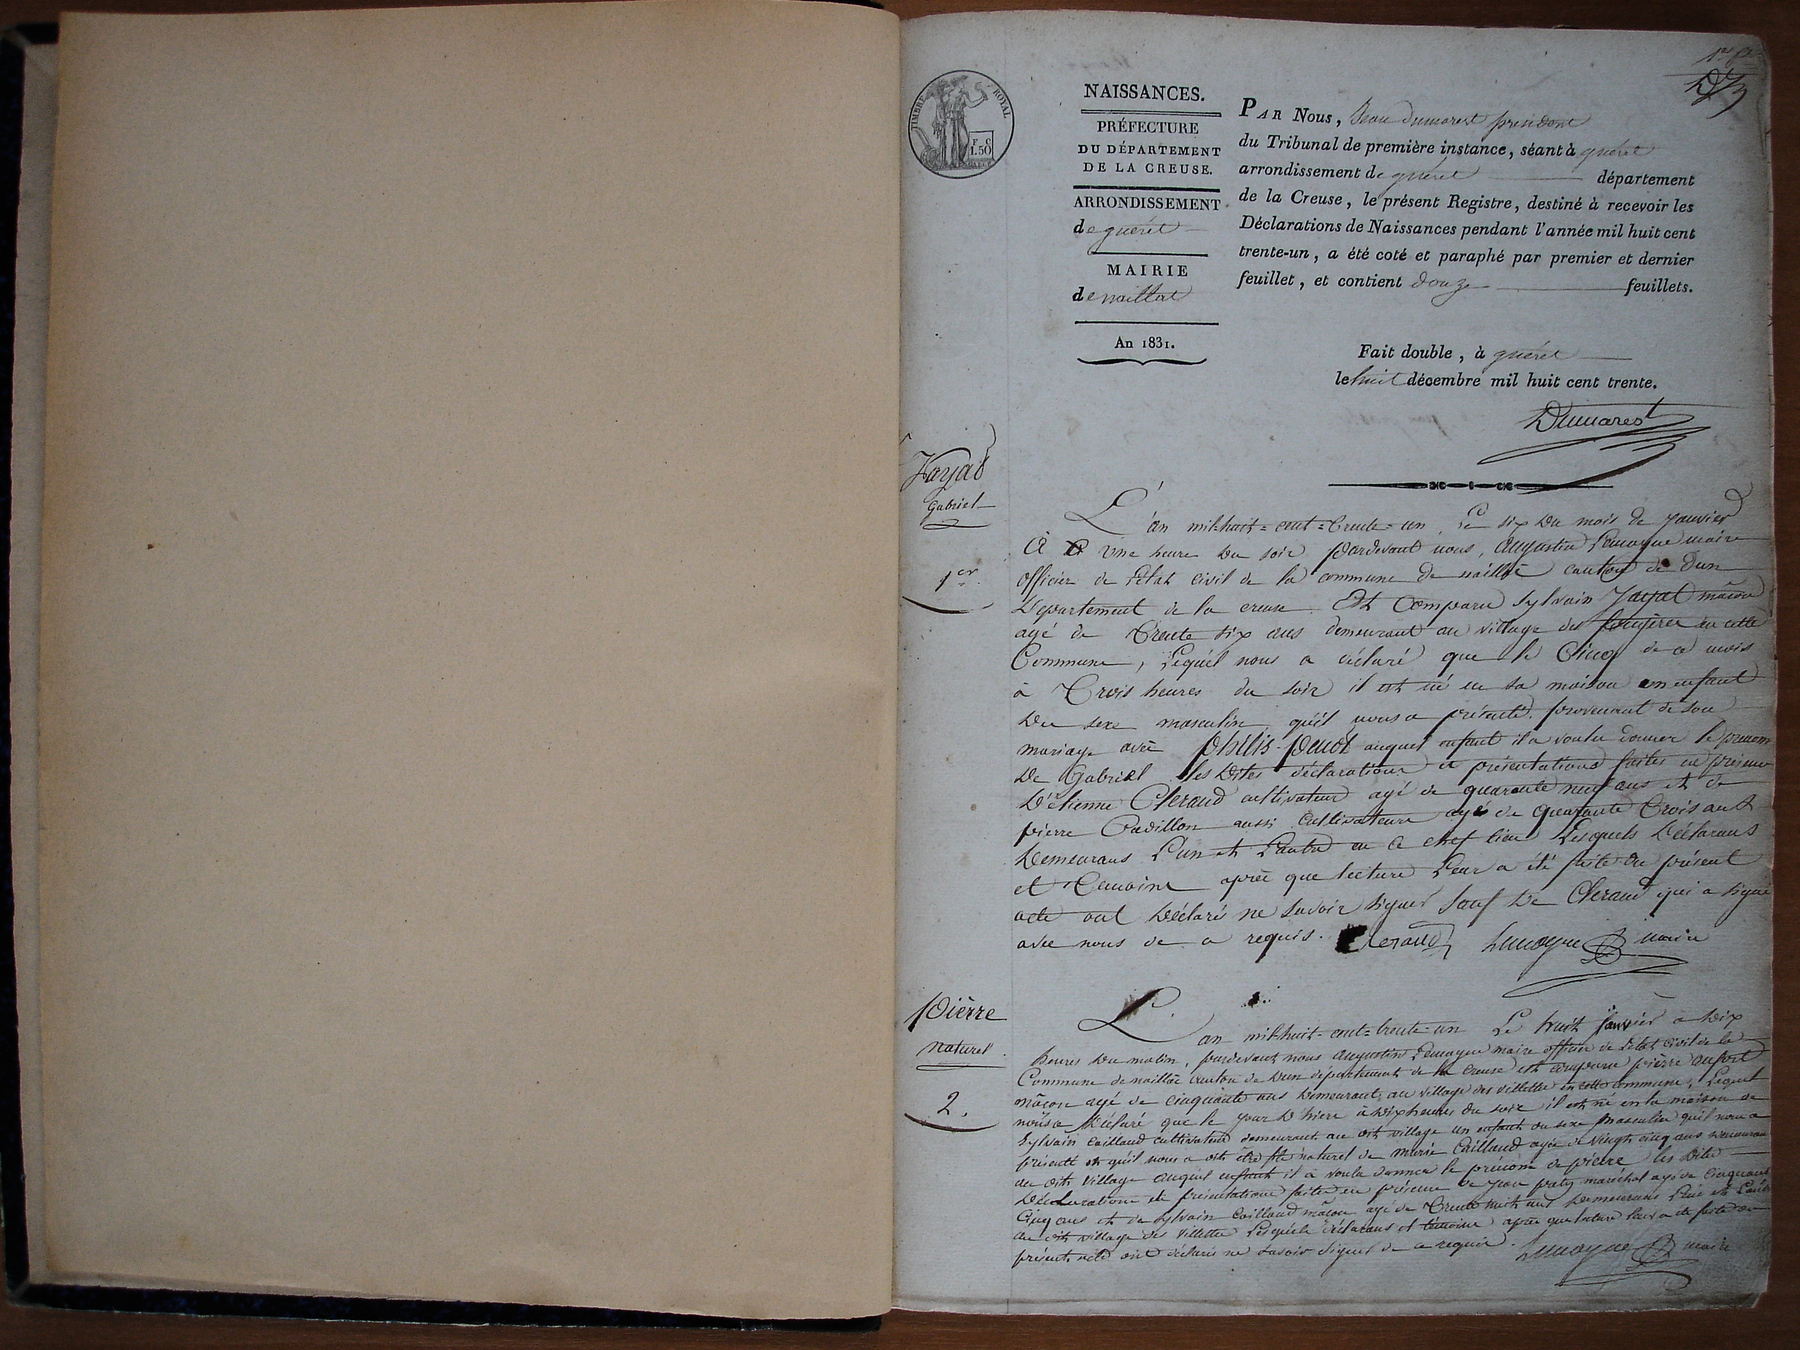 1er fet
TIMBRE ROYAL
F C
1.50
NAISSANCES.
PRÉFECTURE
DU DÉPARTEMENT
DE LA CREUSE.
ARRONDISSEMENT
de guéret
MAIRIE
de naillat
An 1831.
PAR Nous, Dumarest président
du Tribunal de première instance, séant à guéret
arrondissement de guéret département
de la Creuse, le présent Registre, destiné à recevoir les
Déclarations de Naissances pendant l'année mil huit cent
trente-un, a été coté et paraphé par premier et dernier
feuillet, et contient douze feuillets.
Fait double, à guéret
le huit décembre mil huit cent trente.
Dumarest
Jayat
Gabriel
1er
L'an mil-huit-cent-trente-un Le six du mois de janvier
à une heure du soir pardevant nous, augustin Lemoyne maire
officier de l'état civil de la commune de naillat canton de Dun
Département de la creuse. Est Comparu sylvain Jayat maçon
agé de trente six ans demeurant au village des fougères en cette
Commune, Lequel nous a déclaré que le Cinq de ce mois
à Trois heures du soir il est né en sa maison un enfant
du sexe masculin qu'il nous a présenté provenant de son
mariage avec philis auquel enfant il a voulu donner le prenom
De Gabriel les dites déclaration et présentations faites en présence
D'étienne Cleraud cultivateur agé de quarante neuf ans et de
pierre Cadillon aussi cultivateur agé de quarante trois ans
Demeurans L'un et L'autre en ce chef lieu Lesquels Déclarans
et Temoins après que lecture Leur a été faite du présent
acte ont Déclaré ne savoir signer sauf Cleraud qui a signé
avec nous de ce requis. Cleraud Lemoyne maire
pièrre
naturel
2.
L'an mil-huit-cent-trente-un Le huit janvier à dix
heures du matin, pardevant nous augustin Lemoyne maire officier de l'état civil de la
Commune de naillat canton de Dun département de la creuse est comparu pièrre
maçon agé de cinquante ans demeurant au village des villettes en cette commune, Lequel
nous a déclaré que le jour d'hier à dix heures du soir il est né en la maison de
Sylvain Caillaud cultivateur demeurant au dit village un enfant du sexe masculin qu'il nous a
présenté et qu'il nous a dit être fils naturel de marie Caillaud agée de vingt cinq ans demeurant
au dit village auquel enfant il a voulu donner le prénom de pièrre les dites
Déclarations et présentations faites en présence de jean maréchal agé de cinquante
cinq ans et de sylvain Caillaud maçon agé de Trente huit ans Demeurans L'un et L'autre
au dit village des villettes Lesquels déclarans et témoins après que lecture leur a été faite du
présent acte ont déclaré ne savoir signer de ce requis. Lemoyne maire